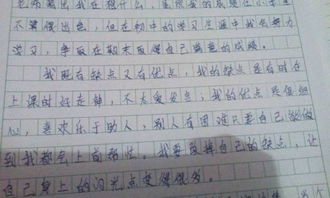 不算偶出色，但在初中的学习生涯中我会努力
学习，争取在期末取得自己满意的成绩。
我既有缺点又有优点，我的缺点是有时在
上课时好走神，不太爱发言；我的优点是
喜欢乐于助人，别人有困难只要自己能做
到我都会上前帮忙。我要改掉自己的缺点，让
自己身上的闪光点变得很多。